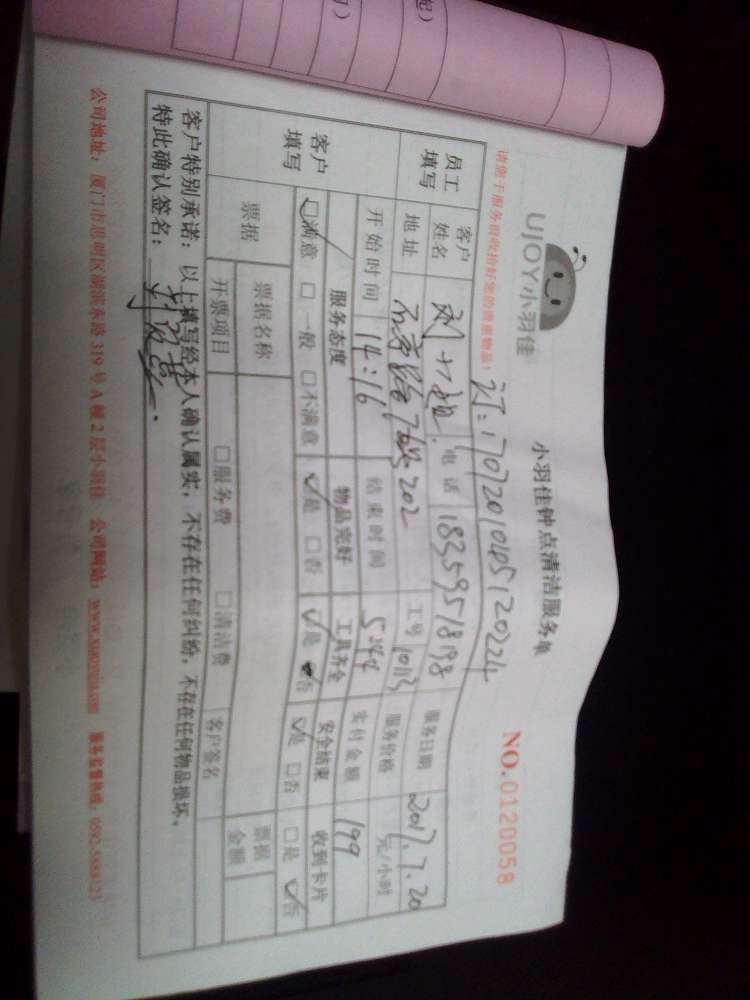 UJOY小羽佳
小羽佳钟点清洁服务单
NO.0120058
请您于服务前收拾好您的贵重物品！
订：17072010485120224
员工填写
客户姓名 刘小姐 电话 18359518198 服务日期 2017.7.20
地址 202 工号 10113 服务价格 元/小时
开始时间 14:16 结束时间 5:44 实付金额 199
客户填写
服务态度 物品完好 工具齐全 安全结束 收到卡片
☑满意 □一般 □不满意 ☑是 □否 ☑是 否 ☑是 □否 □是 ☑否
票据 票据名称 票据金额
开票项目 □服务费 □清洁费 客户签名
客户特别承诺：以上填写经本人确认属实，不存在任何纠纷，不存在任何物品损坏，
特此确认签名：
公司地址：厦门市思明区湖滨东路319号A幢2层小羽佳 公司网站：www.xiaoyujia.com 服务监督热线：0592-5884123